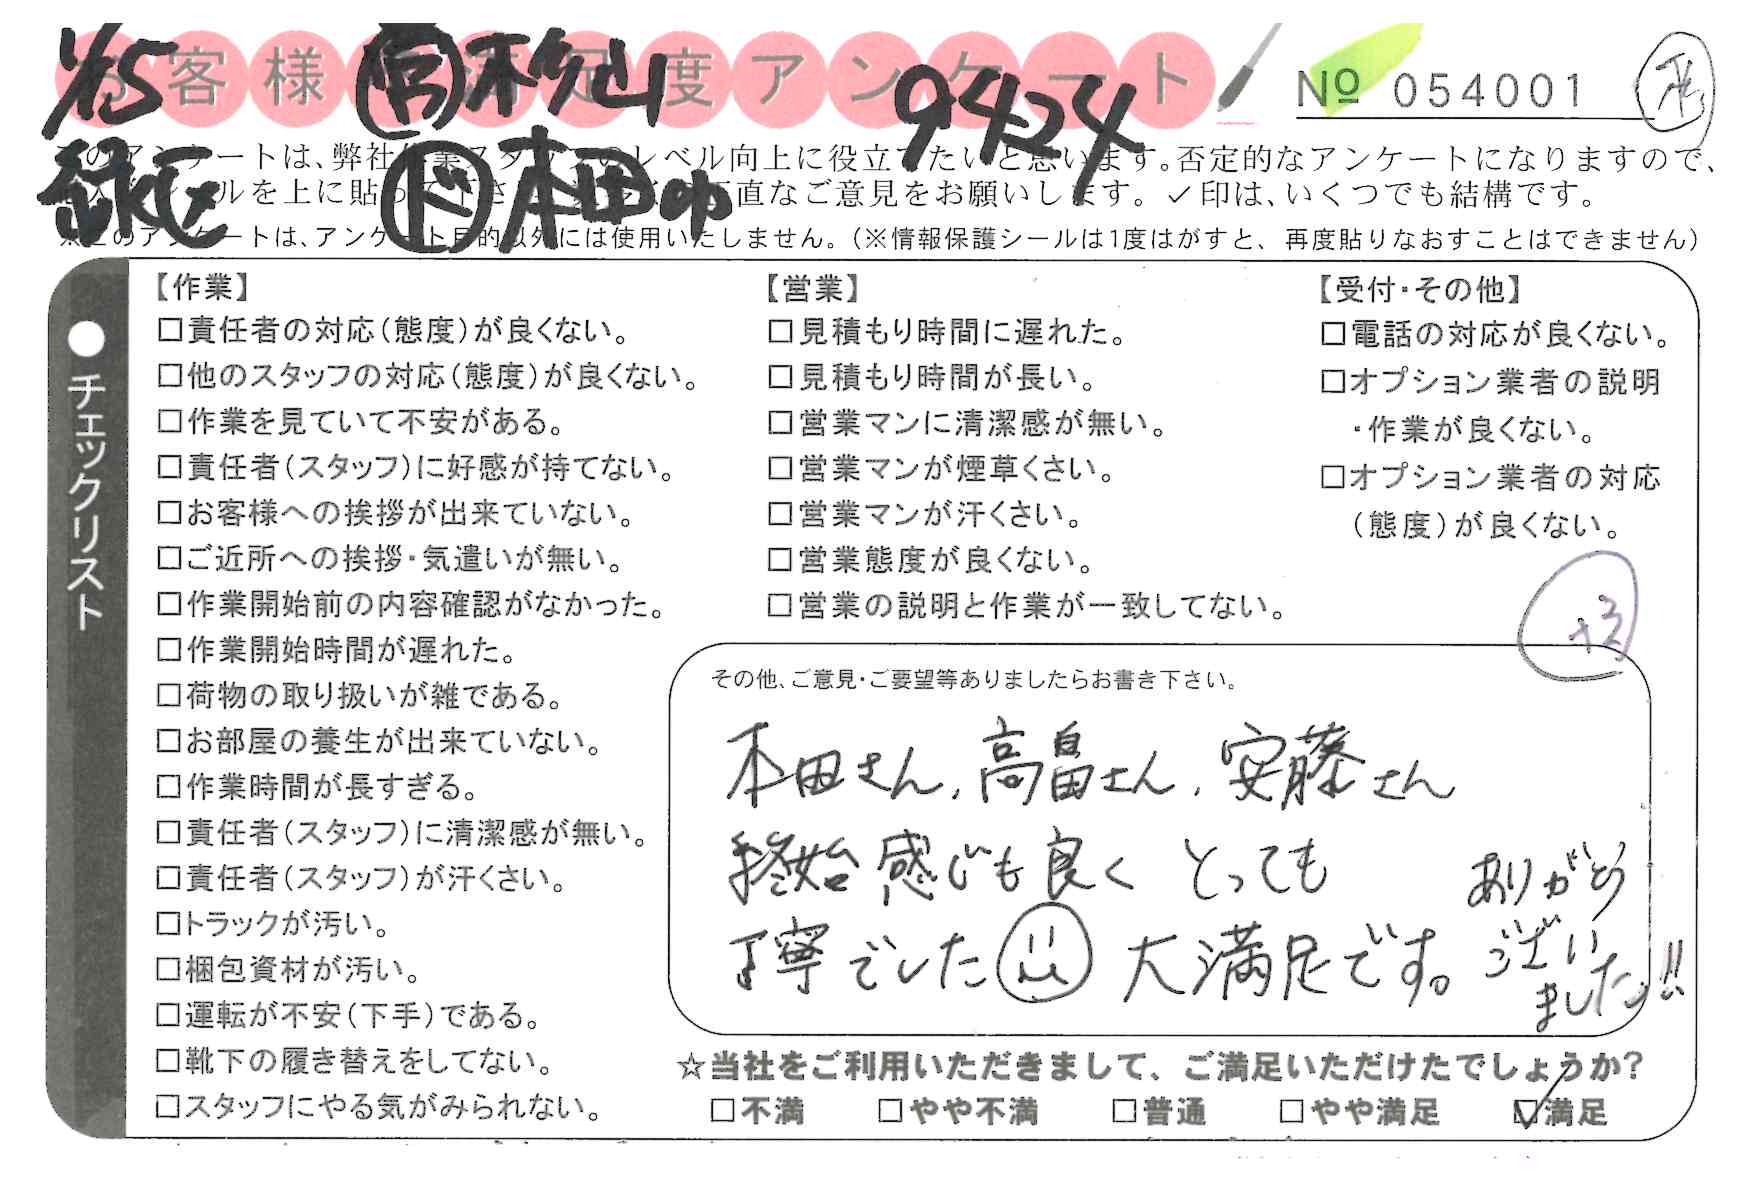 お客様満足度アンケート
1/15
㊂杉山
9424
№ 054001
このアンケートは、弊社作業スタッフのレベル向上に役立てたいと思います。否定的なアンケートになりますので、
ド 本田
ールを上に貼って下さ 直なご意見をお願いします。✓印は、いくつでも結構です。
※このアンケートは、アンケート目的以外には使用いたしません。(※情報保護シールは1度はがすと、再度貼りなおすことはできません)
●チェックリスト
【作業】
□責任者の対応(態度)が良くない。
□他のスタッフの対応(態度)が良くない。
□作業を見ていて不安がある。
□責任者(スタッフ)に好感が持てない。
□お客様への挨拶が出来ていない。
□ご近所への挨拶・気遣いが無い。
□作業開始前の内容確認がなかった。
□作業開始時間が遅れた。
□荷物の取り扱いが雑である。
□お部屋の養生が出来ていない。
□作業時間が長すぎる。
□責任者(スタッフ)に清潔感が無い。
□責任者(スタッフ)が汗くさい。
□トラックが汚い。
□梱包資材が汚い。
□運転が不安(下手)である。
□靴下の履き替えをしてない。
□スタッフにやる気がみられない。
【営業】
□見積もり時間に遅れた。
□見積もり時間が長い。
□営業マンに清潔感が無い。
□営業マンが煙草くさい。
□営業マンが汗くさい。
□営業態度が良くない。
□営業の説明と作業が一致してない。
【受付・その他】
□電話の対応が良くない。
□オプション業者の説明
・作業が良くない。
□オプション業者の対応
(態度)が良くない。
+3
その他、ご意見・ご要望等ありましたらお書き下さい。
本田さん、高畠さん、安藤さん
終始感じも良く とっても
丁寧でした 大満足です。
ありがとう
ござい
ました!!
☆当社をご利用いただきまして、ご満足いただけたでしょうか?
□不満 □やや不満 □普通 □やや満足 ☑満足